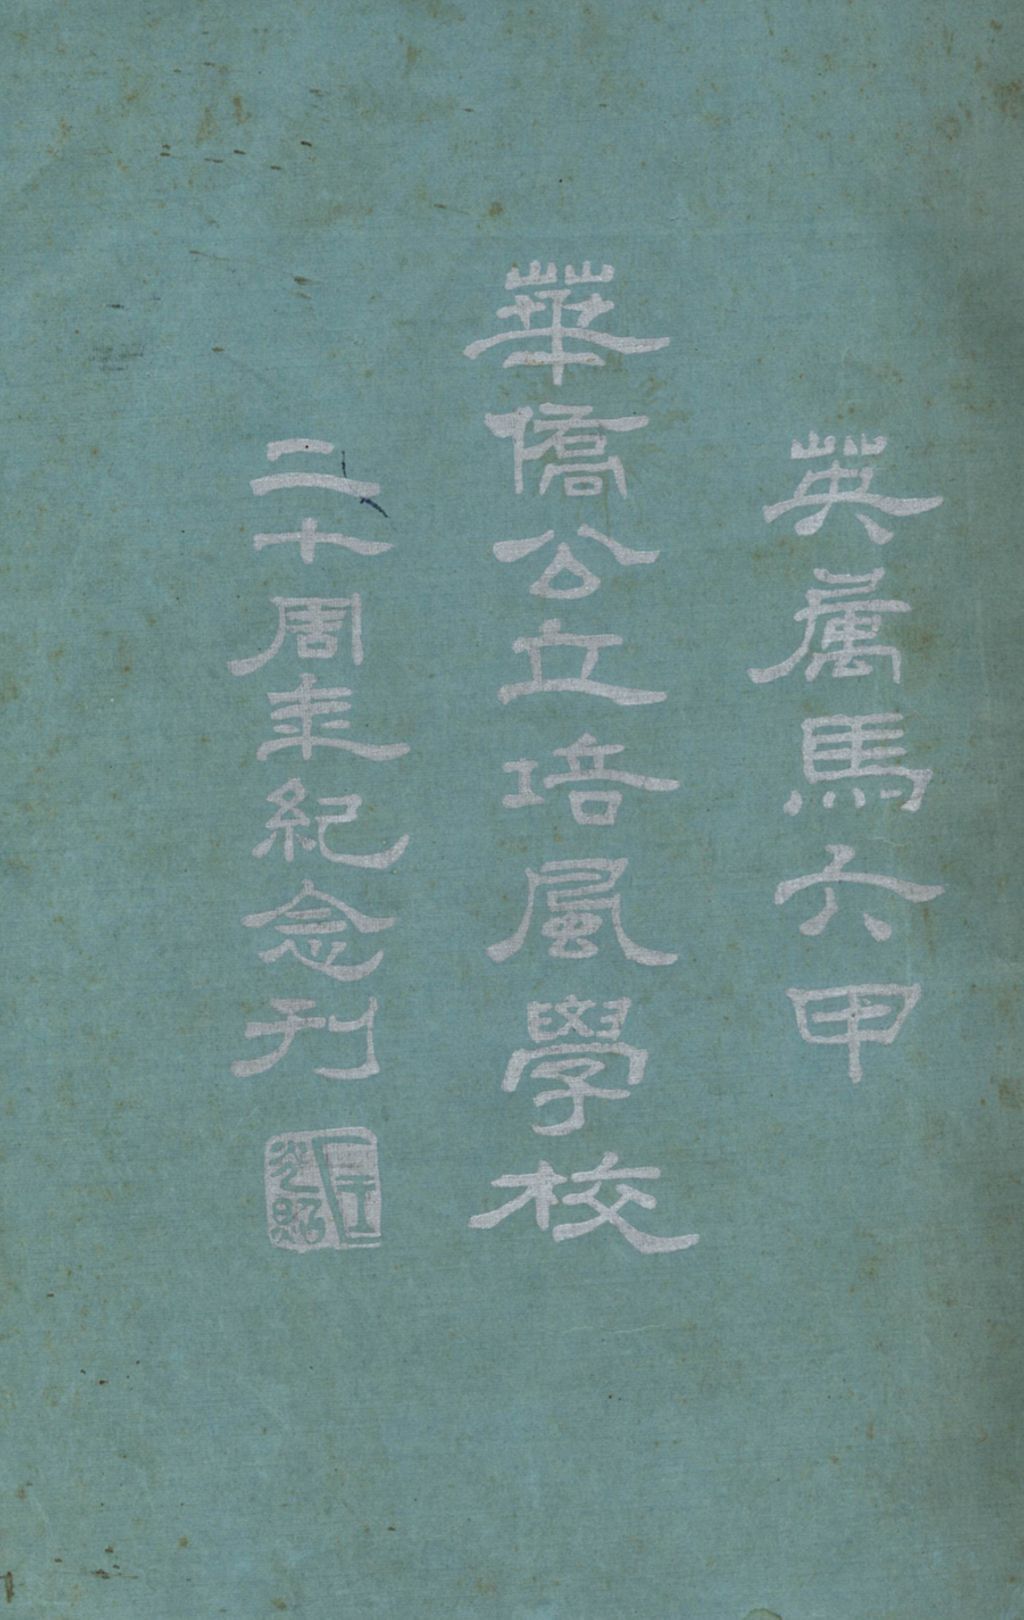 英属馬六甲
華僑公立培風學校
二十周年紀念刊